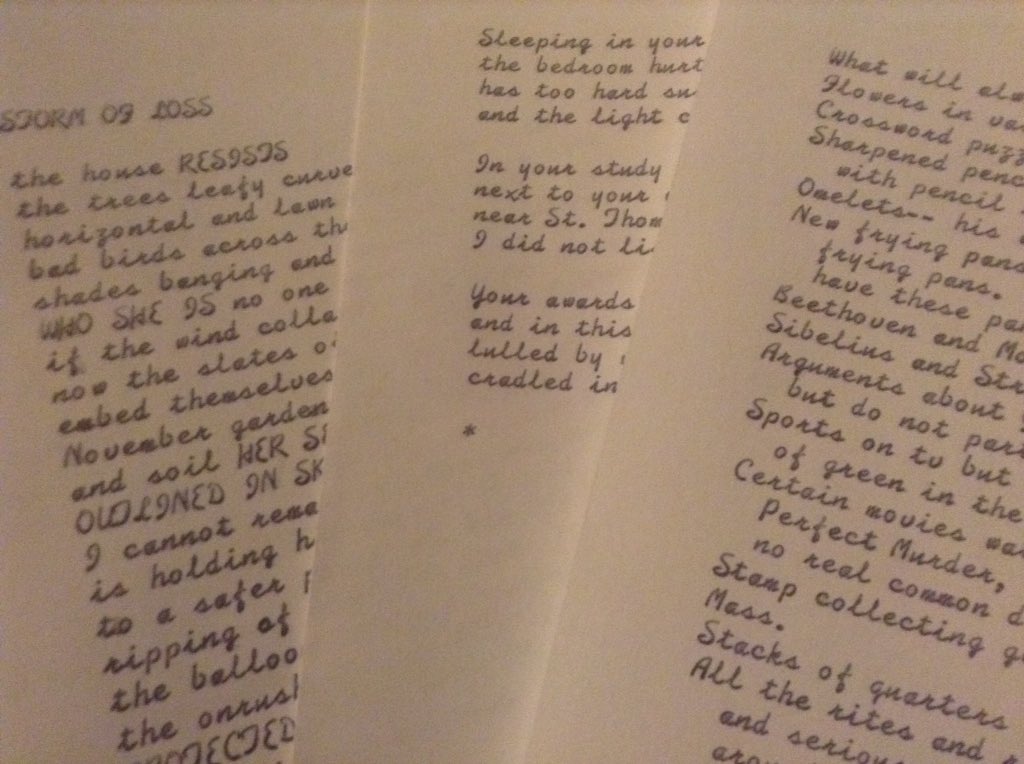 STORM OF LOSS
the house RESISTS
the trees leafy curve
horizontal and lawn
bad birds across
shades banging and
WHO SHE IS no one
if the wind
now the slates
embed themselves
November garden
and soil HER
OUTLINED IN
I cannot
is holding
to a safer
ripping of
the
the
Sleeping in your
the bedroom hurt
has too hard
and the light
In your study
next to your
near St.
I did not
Your awards
and in this
lulled by
cradled in
*
What will
Flowers in
Crossword
Sharpened
with pencil
Omelets-- his
New frying pans
frying pans.
have these
Beethoven and
Sibelius and
Arguments about
but do not part
Sports on tv but
of green in the
Certain movies
Perfect Murder,
no real common
Stamp collecting
Mass.
Stacks of quarters
All the rites and
and